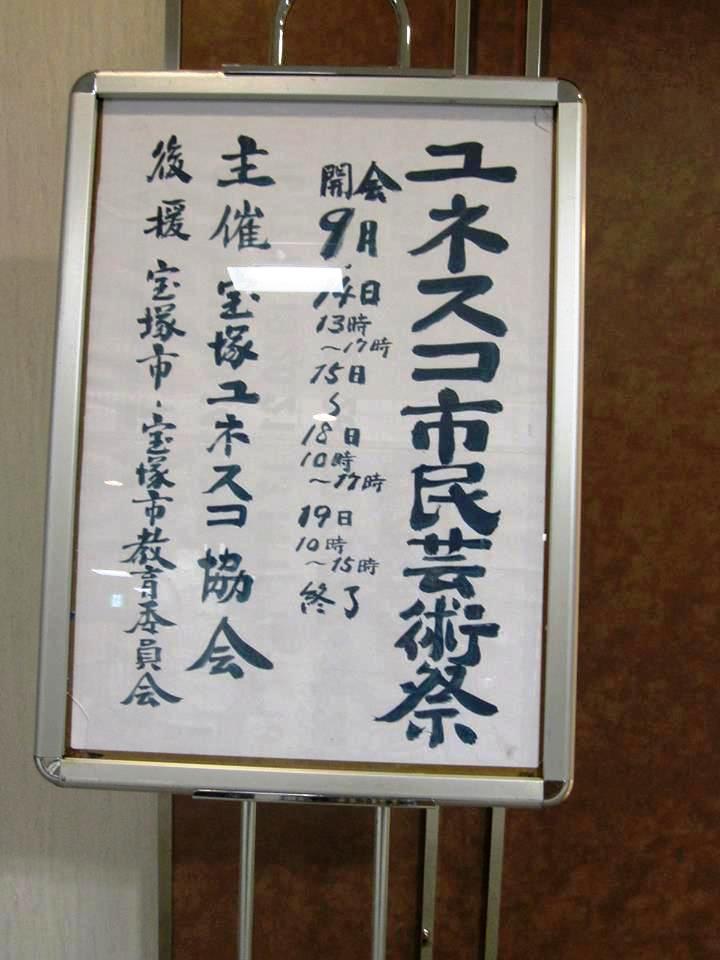 ユネスコ市民芸術祭
開会
9月
14日
13時
～17時
15日
～
18日
10時
～17時
19日
10時
～15時
終了
主催 宝塚ユネスコ協会
後援 宝塚市・宝塚市教育委員会